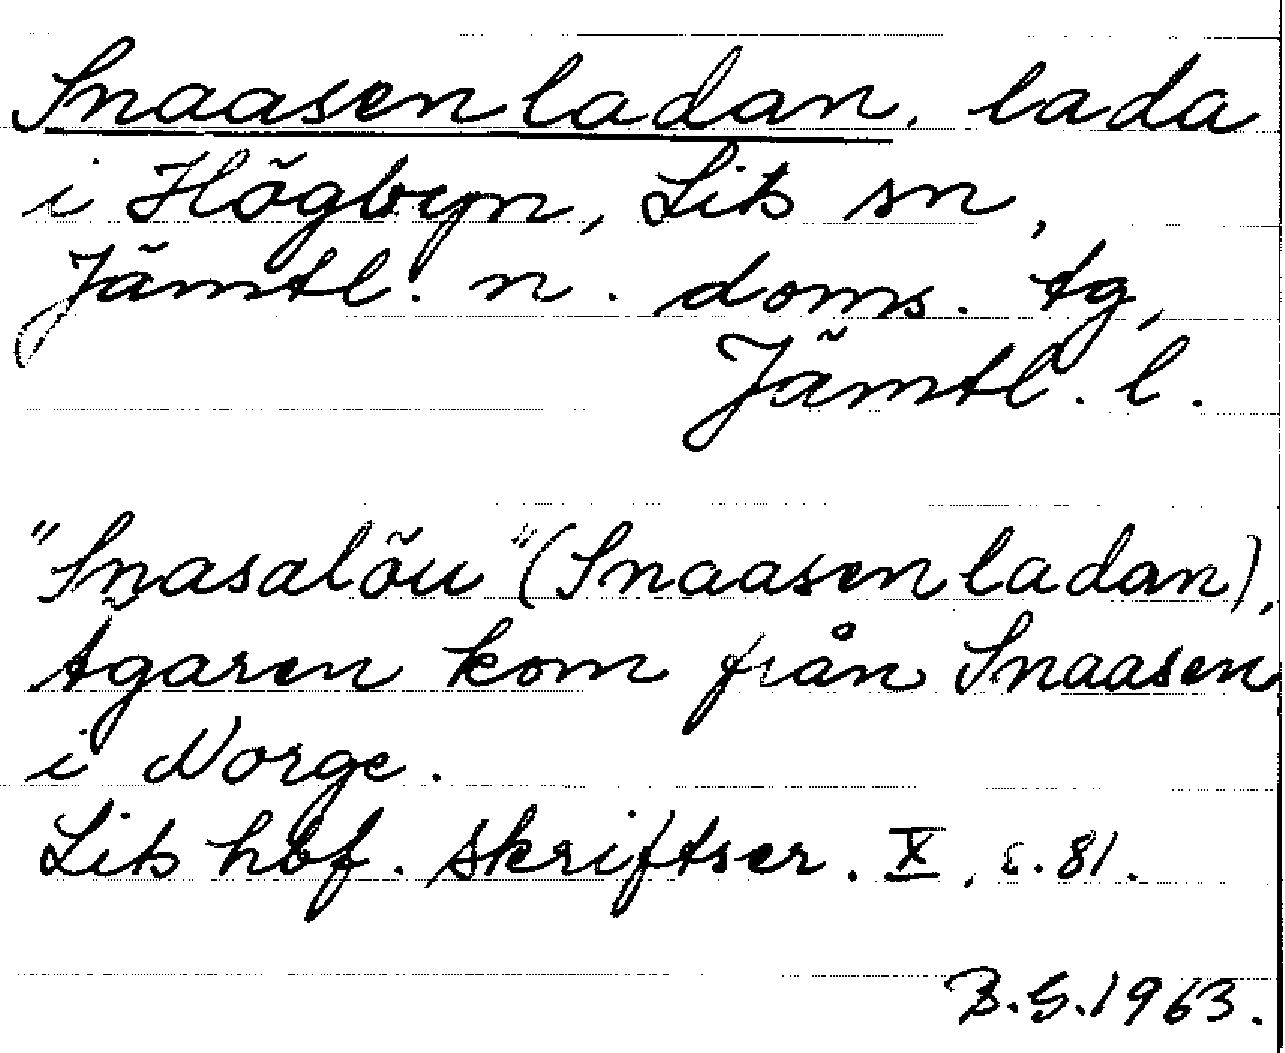 Snaasenladan, lada
i Högbyn, Lits sn,
Jämtl. n. doms. tg,
Jämtl. l.
"Snasalöu" (Snaasenladan),
Ägaren kom från Snaasen
i Norge.
Lits hbf. skriftser. X, s. 81.
B.G. 1963.